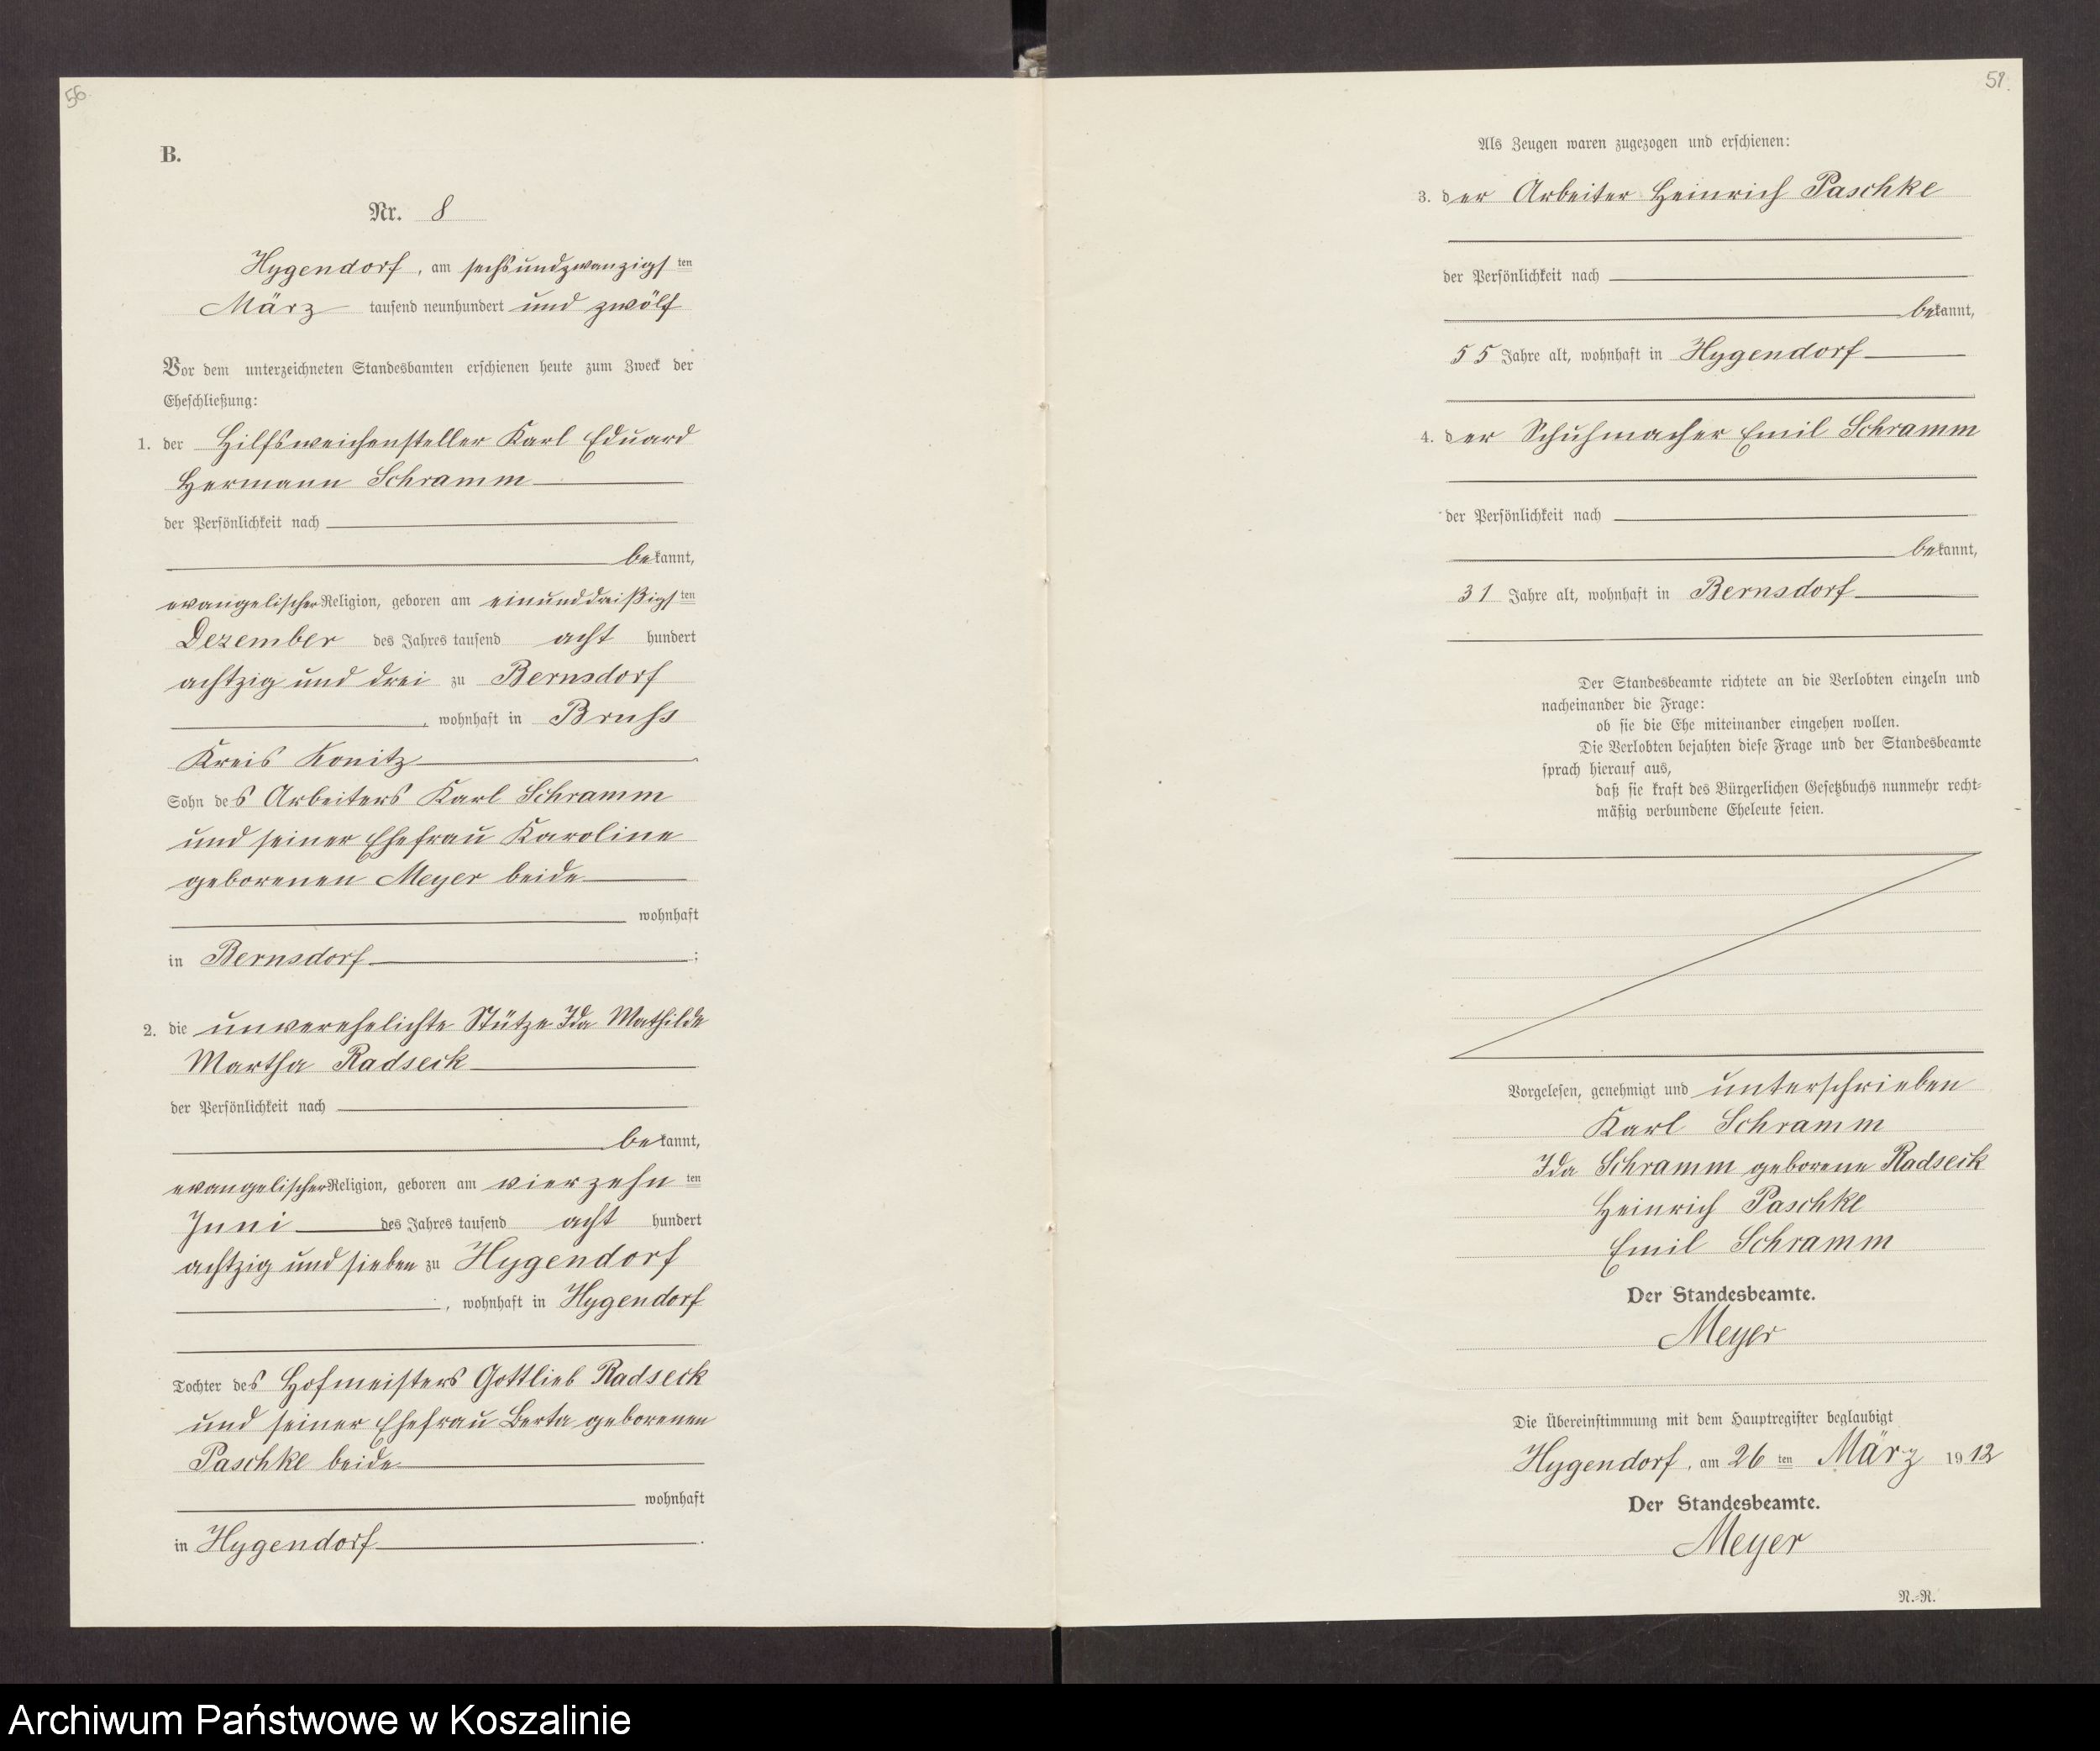 56
B.
Nr. 8
Hygendorf, am sechsundzwanzigsten
März tausend neunhundert und zwölf
Vor dem unterzeichneten Standesbamten erschienen heute zum Zweck der
Eheschließung:
1. der Hilfsweichensteller Karl Eduard
Hermann Schramm
der Persönlichkeit nach
bekannt,
evangelischer Religion, geboren am einunddreißigsten
Dezember des Jahres tausend acht hundert
achtzig und drei zu Bernsdorf
, wohnhaft in Bruss
Kreis Konitz
Sohn des Arbeiters Karl Schramm
und seiner Ehefrau Karoline
geborenen Meyer beide
wohnhaft
in Bernsdorf ;
2. die unverehelichte Stütze Ida Mathilde
Martha Radseck
der Persönlichkeit nach
bekannt,
evangelischer Religion, geboren am vierzehn ten
Juni des Jahres tausend acht hundert
achtzig und sieben zu Hygendorf
, wohnhaft in Hygendorf
Tochter des Hofmeisters Gottlieb Radseck
und seiner Ehefrau Berta geborenen
Paschke beide
wohnhaft
in Hygendorf .
Als Zeugen waren zugezogen und erschienen:
3. der Arbeiter Heinrich Paschke
der Persönlichkeit nach
bekannt,
55 Jahre alt, wohnhaft in Hygendorf
4. der Schuhmacher Emil Schramm
der Persönlichkeit nach
bekannt,
31 Jahre alt, wohnhaft in Bernsdorf
Der Standesbeamte richtete an die Verlobten einzeln und
nacheinander die Frage:
ob sie die Ehe miteinander eingehen wollen.
Die Verlobten bejahten diese Frage und der Standesbeamte
sprach hierauf aus,
daß sie kraft des Bürgerlichen Gesetzbuchs nunmehr recht-
mäßig verbundene Eheleute seien.
Vorgelesen, genehmigt und unterschrieben
Karl Schramm
Ida Schramm geborene Radseck
Heinrich Paschke
Emil Schramm
Der Standesbeamte.
Meyer
Die Übereinstimmung mit dem Hauptregister beglaubigt
Hygendorf, am 26 ten März 1912
Der Standesbeamte.
Meyer
N.-R.
Archiwum Państwowe w Koszalinie